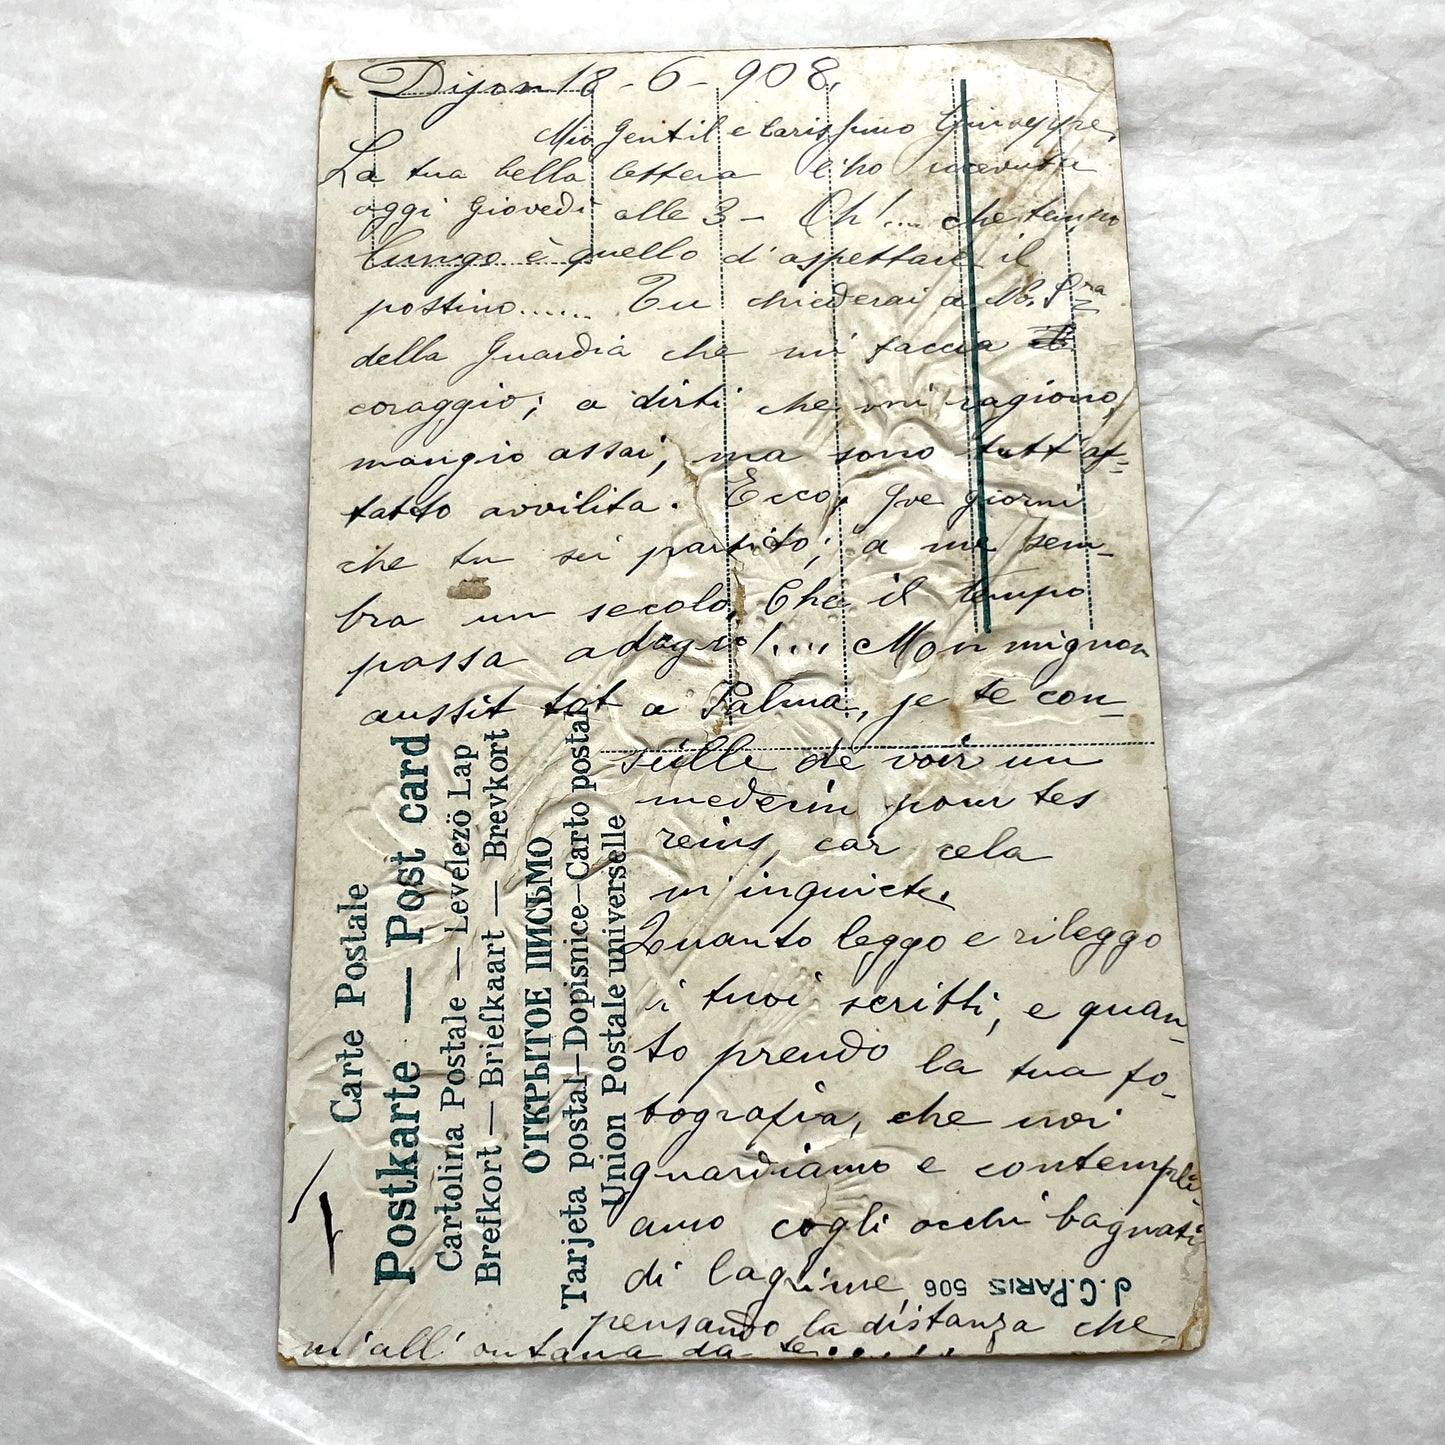 Dijon 18-6-908.
Mio gentil e carissimo Giuseppe,
La tua bella lettera l'ho ricevuta
oggi Giovedì alle 3 - Oh!.... che tempo
lungo è quello d'aspettare il
postino...... Tu chiederai a N. Sra
della Guardia che mi faccia
coraggio; a dirti che mi ragiono,
mangio assai, ma sono tutt'af-
fatto avvilita. Ecco, tre giorni
che tu sei partito; a me sem-
bra un secolo, Che il tempo
passa adagio!.... Mon mignon
aussit tot a Palma, je te con-
seille de voir un
medecin pour tes
reins, car cela
m'inquiete.
Quanto leggo e rileggo
i tuoi scritti, e quan-
to prendo la tua fo-
tografia, che noi
guardiamo e contempli-
amo cogli occhi bagnati
di lagrime,
pensando la distanza che
m'all'ontana da te......
Carte Postale
Postkarte — Post card
Cartolina Postale — Levelezö Lap
Brefkort — Briefkaart — Brevkort
ОТКРЫТОЕ ПИСЬМО
Tarjeta postal—Dopisnice—Carto postal
Union Postale universelle
J.C. PARIS 506